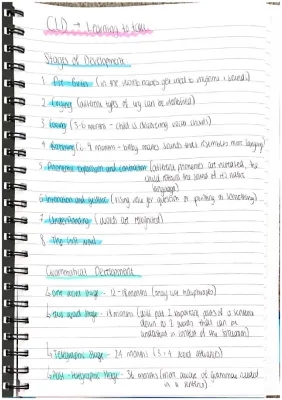 CLD → Learning to talk
Stages of Development
1. Pre-birth (in the womb babies get used to rhythms & sounds)
2. Crying (different types of cry can be identified)
3. Cooing (3-6 months - child is developing vocal chords)
4. Babbling (6-9 months - baby makes sounds that resembles more language)
5. Phonemic expansion and contraction (different phonemes are increased, the
child retains the sound of its native
language)
6. Intonation and gesture (rising tone for question or pointing to something)
7. Understanding (words are recognised)
8. The first word
Grammatical Development
↳ One word stage - 12-18 months (may use holophrases)
↳ Two word stage - 18 months (will put 2 important parts of a sentence
down to 2 words that can be
understood in context of the situation)
↳ Telegraphic stage - 24 months (3-4 word utterances)
↳ Post-telegraphic stage - 36 months (more aware of grammar needed
in a sentence)